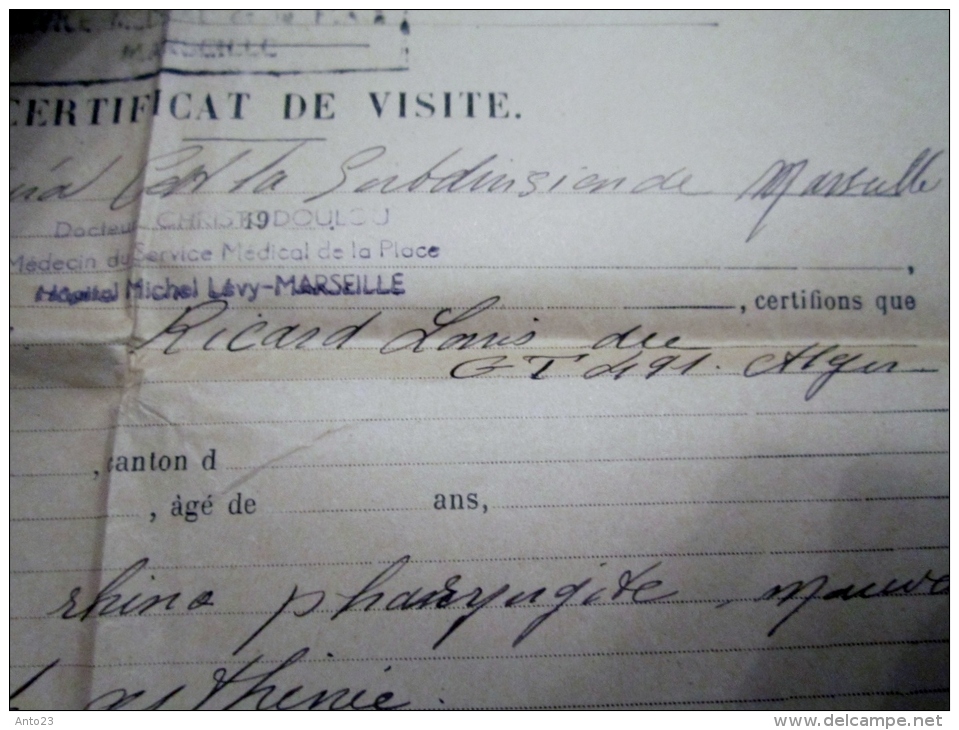 MARSEILLE
CERTIFICAT DE VISITE.
la Subdivision de Marseille
19
Docteur CHRISTODOULOU
Médecin du Service Médical de la Place
Hôpital Michel Lévy-MARSEILLE
, certifions que
Ricard Louis du
GT 491. Alger
, canton d
, àgé de ans,
rhino pharyngite, mauva
asthénie.
Anto23
www.delcampe.net